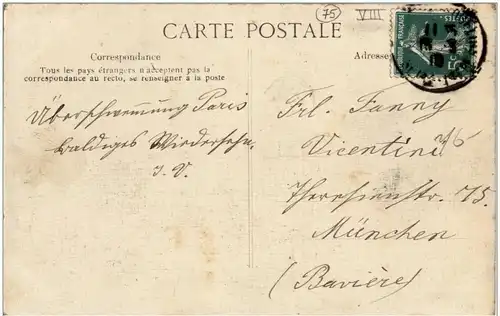 CARTE POSTALE
75
VIII
Correspondance
Tous les pays étrangers n'acceptent pas la
correspondance au recto, se renseigner à la poste
Adresse
Überschwemmung Paris
baldiges Wiedersehn.
J. V.
Frl. Fanny
Vicentini
Theresienstr. 75.
München
(Bavière)